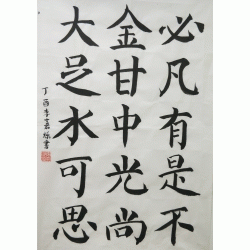 必凡有是不
金甘中光尚
大足水可思
丁酉李
書